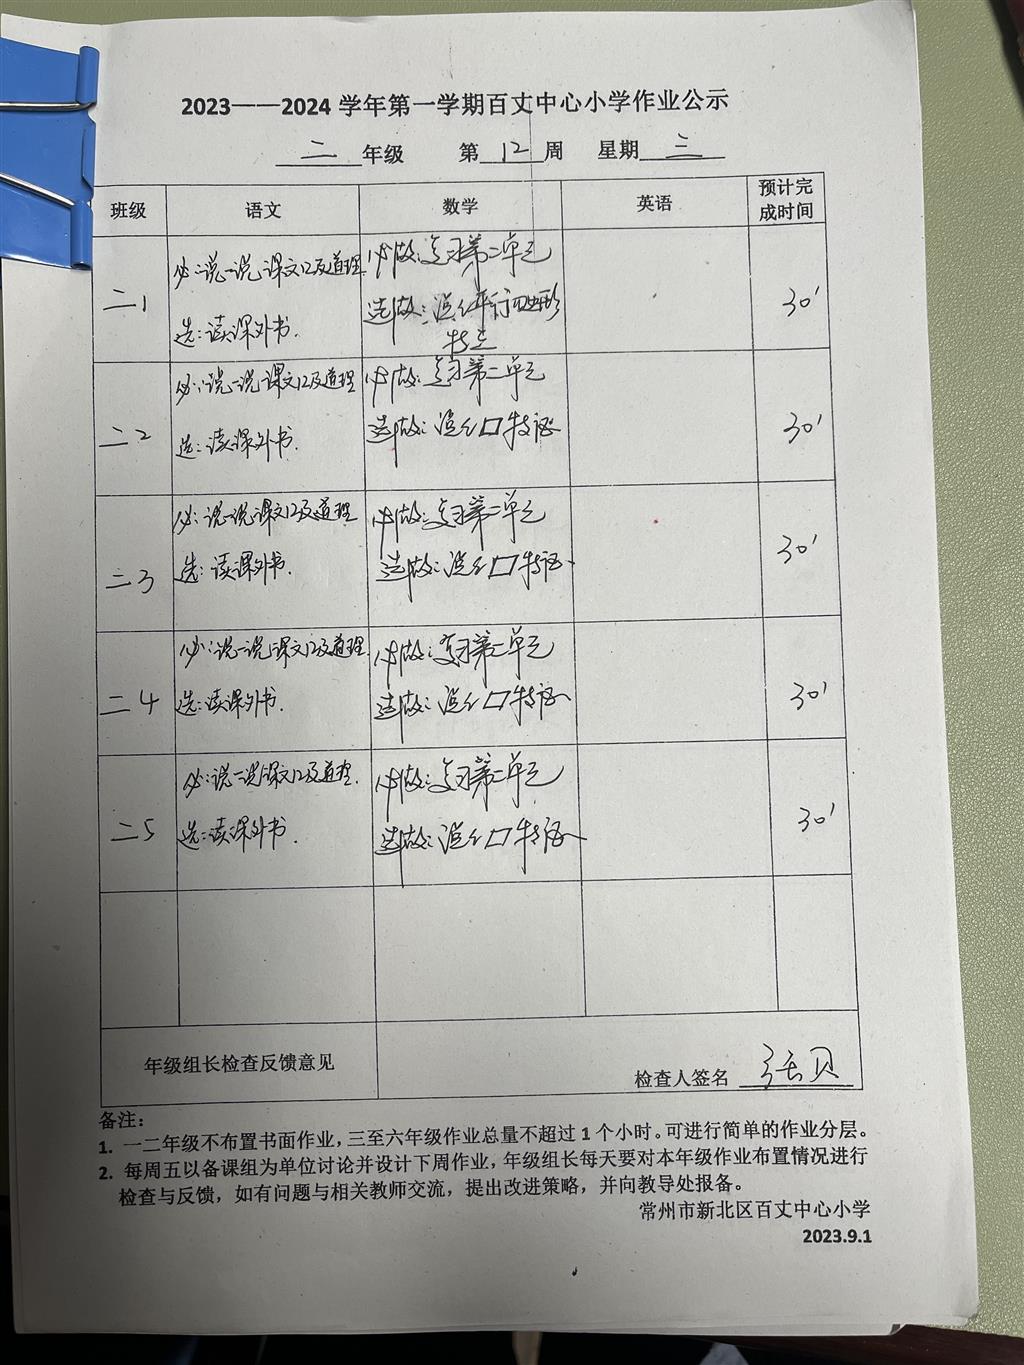 2023——2024 学年第一学期百丈中心小学作业公示
二 年级 第 12 周 星期 三
班级 语文 数学 英语 预计完成时间
二1 必:说一说课文12及道理 必做:复习第二单元 30'
选:读课外书. 选做:说红平行四边形特点
二2 必:说一说课文12及道理 必做:复习第二单元 30'
选:读课外书. 选做:说红口特征
二3 必:说一说课文12及道理 必做:复习第二单元 30'
选:读课外书. 选做:说红口特征
二4 必:说一说课文12及道理 必做:复习第二单元 30'
选:读课外书. 选做:说红口特征
二5 必:说一说课文12及道理. 必做:复习第二单元 30'
选:读课外书 选做:说红口特征
年级组长检查反馈意见 检查人签名 张贝
备注:
1. 一二年级不布置书面作业,三至六年级作业总量不超过 1 个小时。可进行简单的作业分层。
2. 每周五以备课组为单位讨论并设计下周作业,年级组长每天要对本年级作业布置情况进行
检查与反馈,如有问题与相关教师交流,提出改进策略,并向教导处报备。
常州市新北区百丈中心小学
2023.9.1